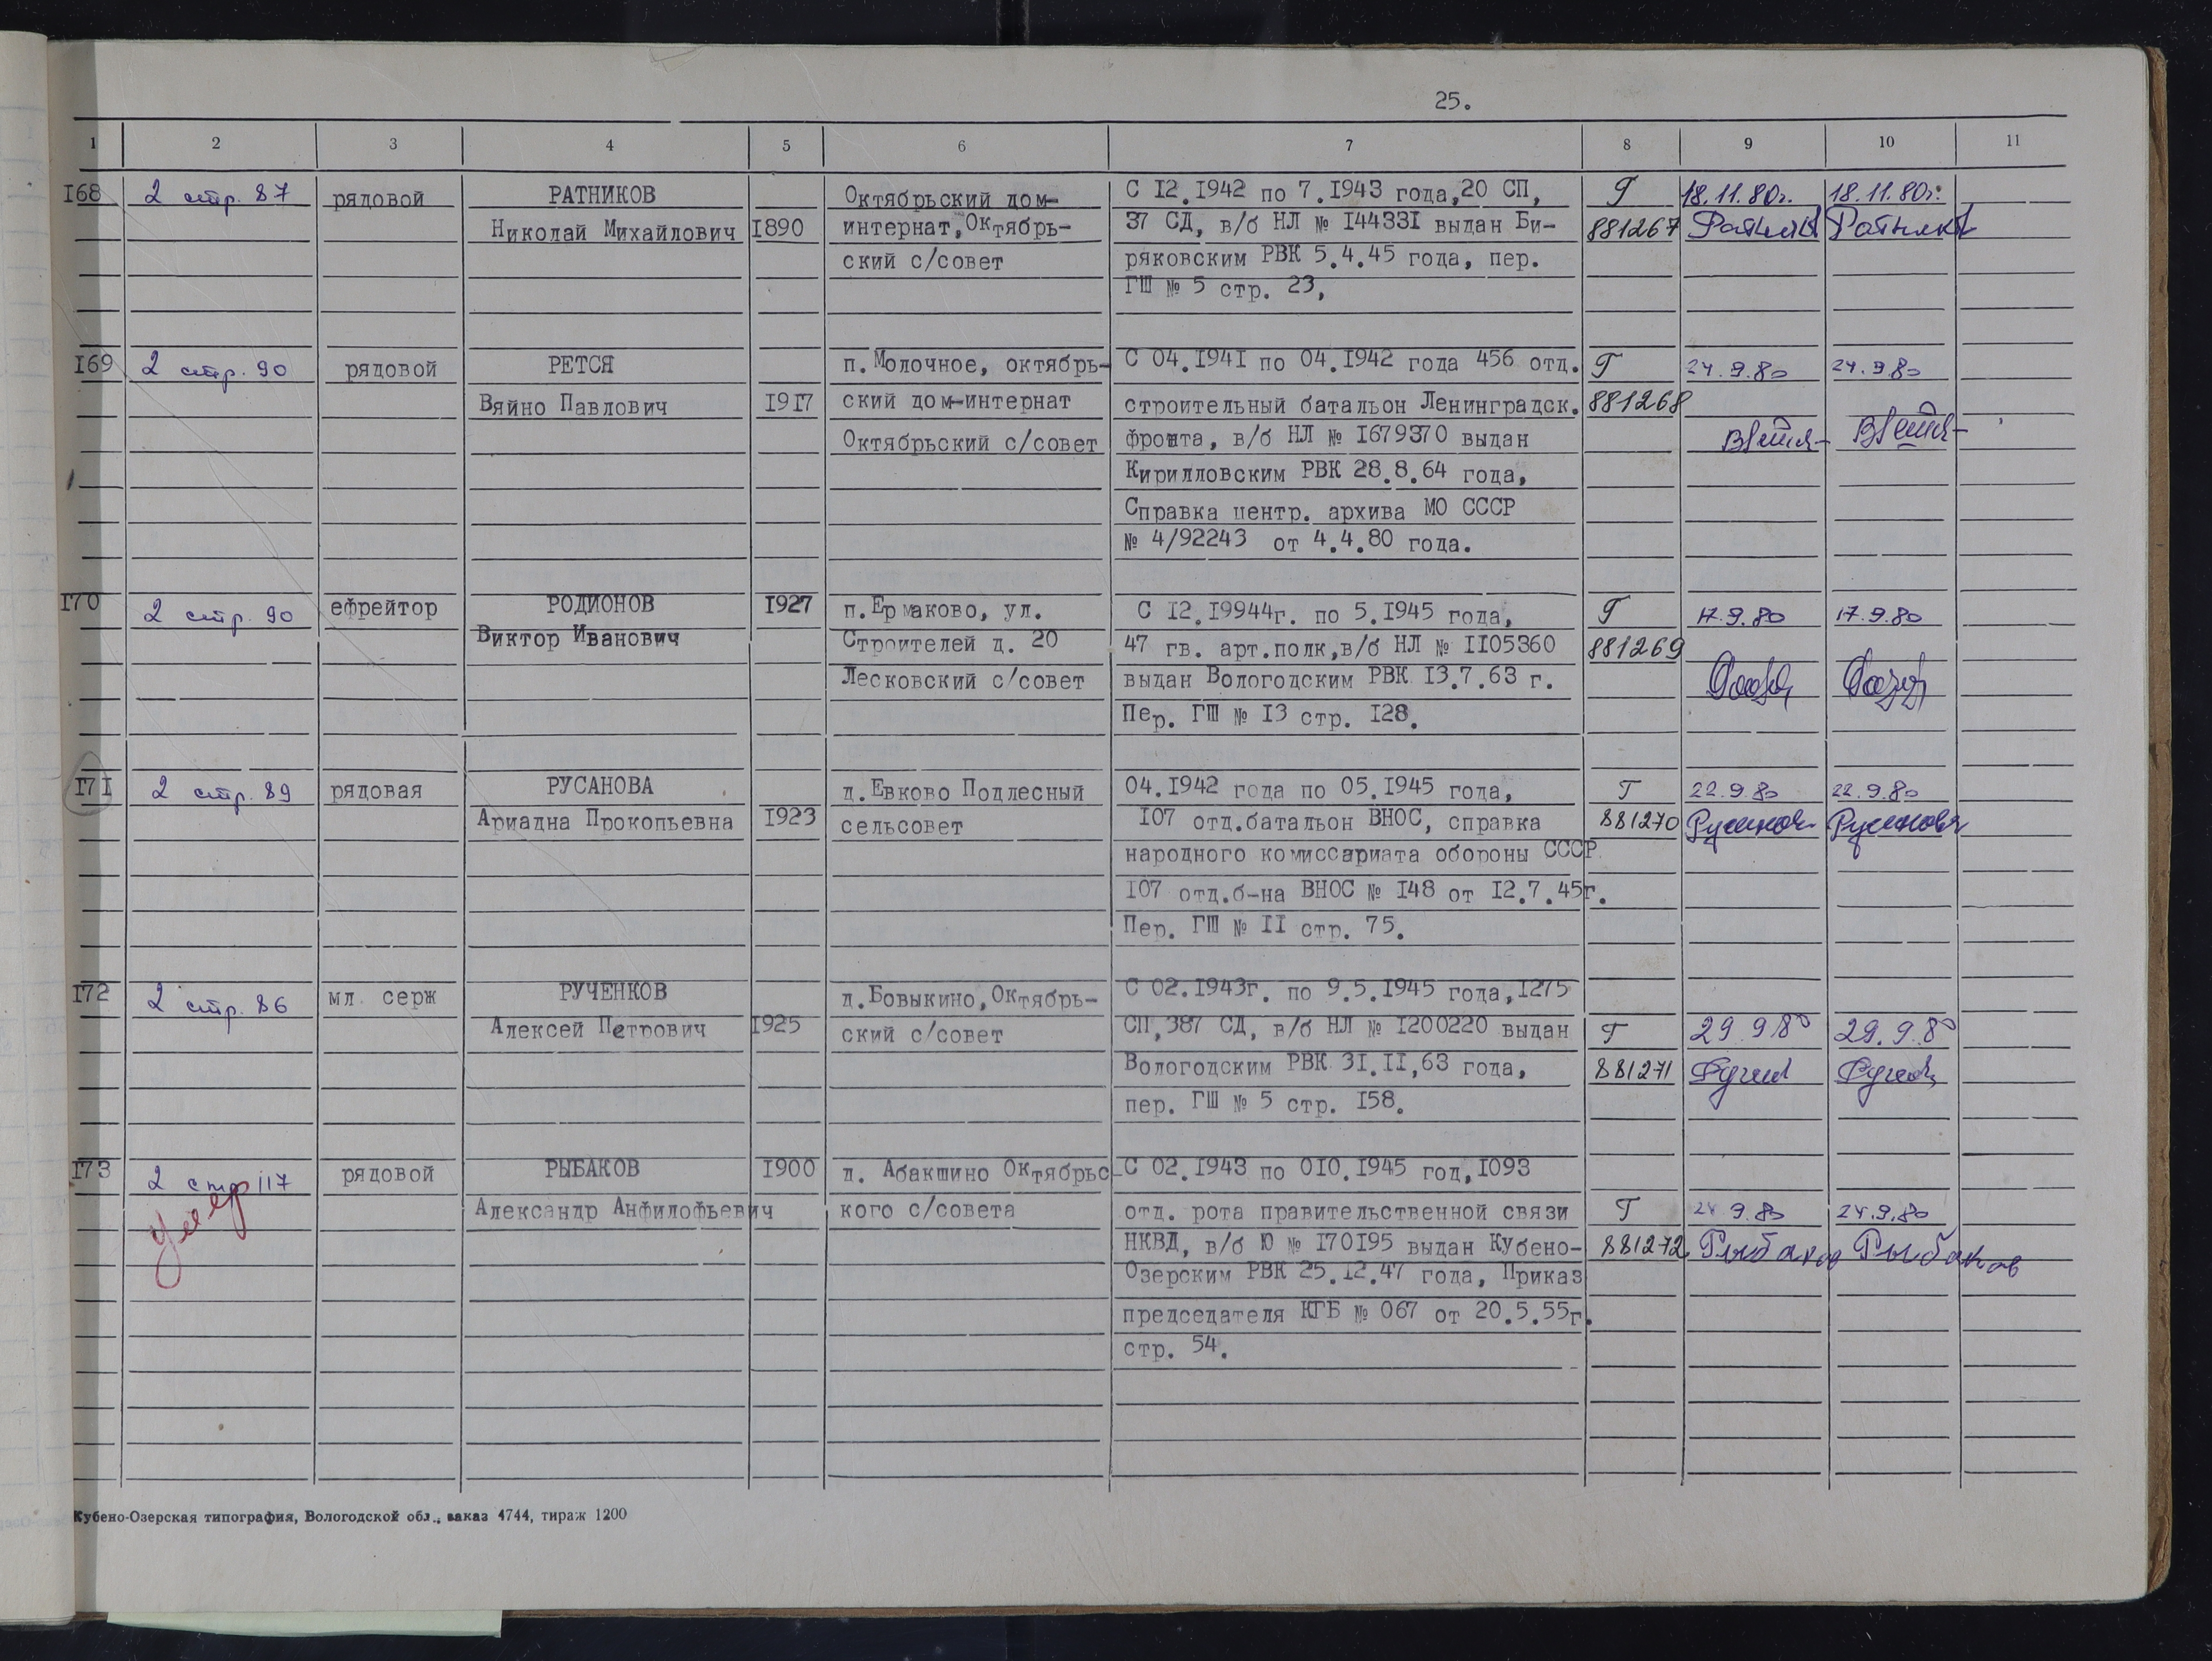 25.
1 2 3 4 5 6 7 8 9 10 11
168 2 стр. 87 рядовой РАТНИКОВ Октябрьский дом- С 12.1942 по 7.1943 года,20 СП, Г 18.11.80г. 18.11.80г.
Николай Михайлович 1890 интернат,Октябрь- 37 СД, в/б НЛ № 144331 выдан Би- 881267
ский с/совет ряковским РВК 5.4.45 года, пер.
ГШ № 5 стр. 23,
169 2 стр. 90 рядовой РЕТСЯ п.Молочное, октябрь- С 04.1941 по 04.1942 года 456 отд. Г 24.9.80 24.9.80
Вяйно Павлович 1917 ский дом-интернат строительный батальон Ленинградск. 881268
Октябрьский с/совет фронта, в/б НЛ № 1679370 выдан
Кирилловским РВК 28.8.64 года,
Справка центр. архива МО СССР
№ 4/92243 от 4.4.80 года.
170 2 стр. 90 ефрейтор РОДИОНОВ 1927 п.Ермаково, ул. С 12.19944г. по 5.1945 года, Г 17.9.80 17.9.80
Виктор Иванович Строителей д. 20 47 гв. арт.полк,в/б НЛ № 1105360 881269
Лесковский с/совет выдан Вологодским РВК 13.7.63 г.
Пер. ГШ № 13 стр. 128.
171 2 стр. 89 рядовая РУСАНОВА д.Евково Подлесный 04.1942 года по 05.1945 года, Г 22.9.80 22.9.80
Ариадна Прокопьевна 1923 сельсовет 107 отд.батальон ВНОС, справка 881270 Русанова
народного комиссариата обороны СССР
107 отд.б-на ВНОС № 148 от 12.7.45г.
Пер. ГШ № 11 стр. 75.
172 2 стр. 86 мл. серж РУЧЕНКОВ д.Бовыкино,Октябрь- С 02.1943г. по 9.5.1945 года,1275
Алексей Петрович 1925 ский с/совет СП,387 СД, в/б НЛ № 1200220 выдан Г 29.9.80 29.9.80
Вологодским РВК 31.11,63 года, 881271
пер. ГШ № 5 стр. 158.
173 2 стр 117 рядовой РЫБАКОВ 1900 д. Абакшино Октябрьс- С 02.1943 по 010.1945 год,1093
умер Александр Анфилофьевич кого с/совета отд. рота правительственной связи Г 24.9.80 24.9.80
НКВД, в/б Ю № 170195 выдан Кубено- 881272 Рыбаков Рыбаков
Озерским РВК 25.12.47 года, Приказ
председателя КГБ № 067 от 20.5.55г.
стр. 54.
Кубено-Озерская типография, Вологодской обл., заказ 4744, тираж 1200